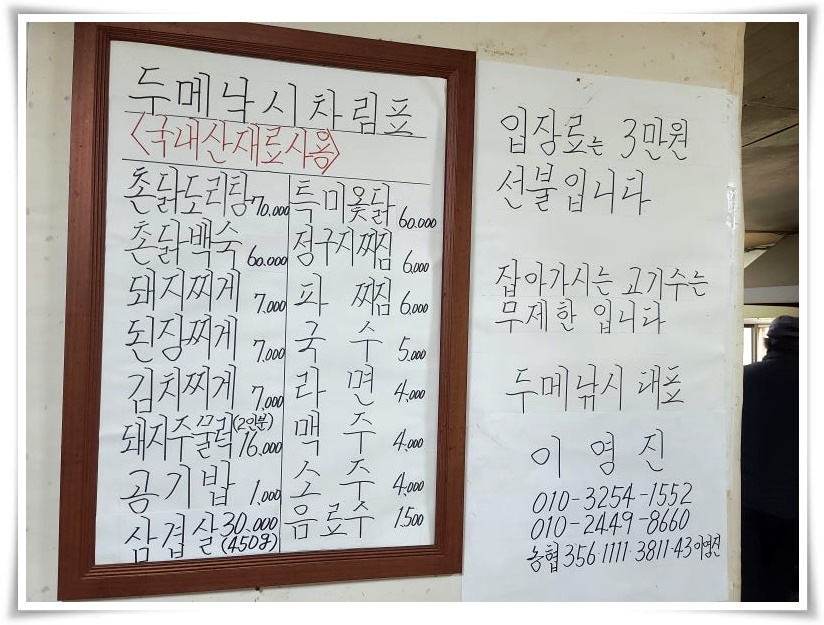 두메낚시차림표
<국내산재료사용>
촌닭도리탕 70.000
촌닭백숙 60.000
돼지찌게 7.000
된장찌게 7.000
김치찌게 7.000
돼지주물럭(2인분) 16.000
공기밥 1.000
삼겹살 30.000
(450g)
특미옻닭 60.000
정구지찌짐 6.000
파 찌짐 6.000
국 수 5.000
라 면 4.000
맥 주 4.000
소 주 4.000
음료수 1.500
입장료는 3만원
선불입니다
잡아가시는 고기수는
무제한 입니다
두메낚시 대표
이 영 진
010-3254-1552
010-2449-8660
농협 356·1111·3811·43 이영진